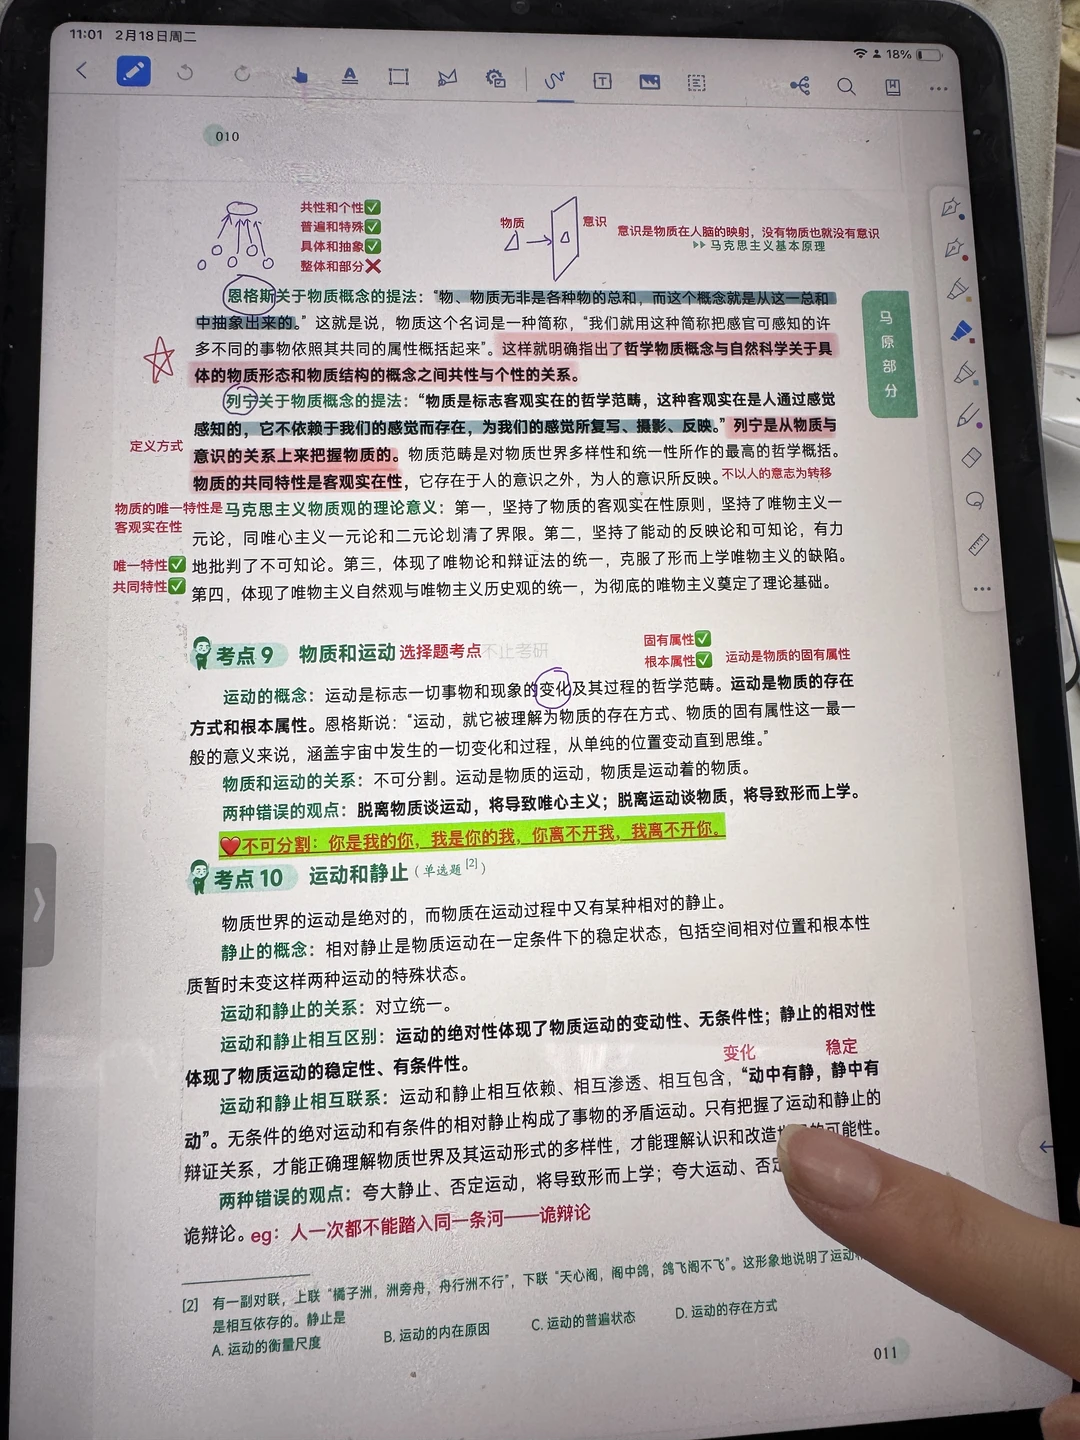 11:01 2月18日周二
18%
010
共性和个性✅
普遍和特殊✅
具体和抽象✅
整体和部分❌
物质
意识
意识是物质在人脑的映射，没有物质也就没有意识
▶▶ 马克思主义基本原理
马原部分
恩格斯关于物质概念的提法：“物、物质无非是各种物的总和，而这个概念就是从这一总和
中抽象出来的。”这就是说，物质这个名词是一种简称，“我们就用这种简称把感官可感知的许
多不同的事物依照其共同的属性概括起来”。这样就明确指出了哲学物质概念与自然科学关于具
体的物质形态和物质结构的概念之间共性与个性的关系。
列宁关于物质概念的提法：“物质是标志客观实在的哲学范畴，这种客观实在是人通过感觉
感知的，它不依赖于我们的感觉而存在，为我们的感觉所复写、摄影、反映。”列宁是从物质与
定义方式
意识的关系上来把握物质的。物质范畴是对物质世界多样性和统一性所作的最高的哲学概括。
物质的共同特性是客观实在性，它存在于人的意识之外，为人的意识所反映。不以人的意志为转移
物质的唯一特性是
客观实在性
马克思主义物质观的理论意义：第一，坚持了物质的客观实在性原则，坚持了唯物主义一
元论，同唯心主义一元论和二元论划清了界限。第二，坚持了能动的反映论和可知论，有力
唯一特性✅
地批判了不可知论。第三，体现了唯物论和辩证法的统一，克服了形而上学唯物主义的缺陷。
共同特性✅
第四，体现了唯物主义自然观与唯物主义历史观的统一，为彻底的唯物主义奠定了理论基础。
考点9 物质和运动 选择题考点
不止考研
固有属性✅
根本属性✅
运动是物质的固有属性
运动的概念：运动是标志一切事物和现象的变化及其过程的哲学范畴。运动是物质的存在
方式和根本属性。恩格斯说：“运动，就它被理解为物质的存在方式、物质的固有属性这一最一
般的意义来说，涵盖宇宙中发生的一切变化和过程，从单纯的位置变动直到思维。”
物质和运动的关系：不可分割。运动是物质的运动，物质是运动着的物质。
两种错误的观点：脱离物质谈运动，将导致唯心主义；脱离运动谈物质，将导致形而上学。
❤️不可分割：你是我的你，我是你的我，你离不开我，我离不开你。
考点10 运动和静止（单选题[2]）
物质世界的运动是绝对的，而物质在运动过程中又有某种相对的静止。
静止的概念：相对静止是物质运动在一定条件下的稳定状态，包括空间相对位置和根本性
质暂时未变这样两种运动的特殊状态。
运动和静止的关系：对立统一。
运动和静止相互区别：运动的绝对性体现了物质运动的变动性、无条件性；静止的相对性
体现了物质运动的稳定性、有条件性。
变化 稳定
运动和静止相互联系：运动和静止相互依赖、相互渗透、相互包含，“动中有静，静中有
动”。无条件的绝对运动和有条件的相对静止构成了事物的矛盾运动。只有把握了运动和静止的
辩证关系，才能正确理解物质世界及其运动形式的多样性，才能理解认识和改造的可能性。
两种错误的观点：夸大静止、否定运动，将导致形而上学；夸大运动、否定
诡辩论。eg：人一次都不能踏入同一条河——诡辩论
[2] 有一副对联，上联“橘子洲，洲旁舟，舟行洲不行”，下联“天心阁，阁中鸽，鸽飞阁不飞”。这形象地说明了运动
是相互依存的。静止是
A. 运动的衡量尺度 B. 运动的内在原因 C. 运动的普遍状态 D. 运动的存在方式
011